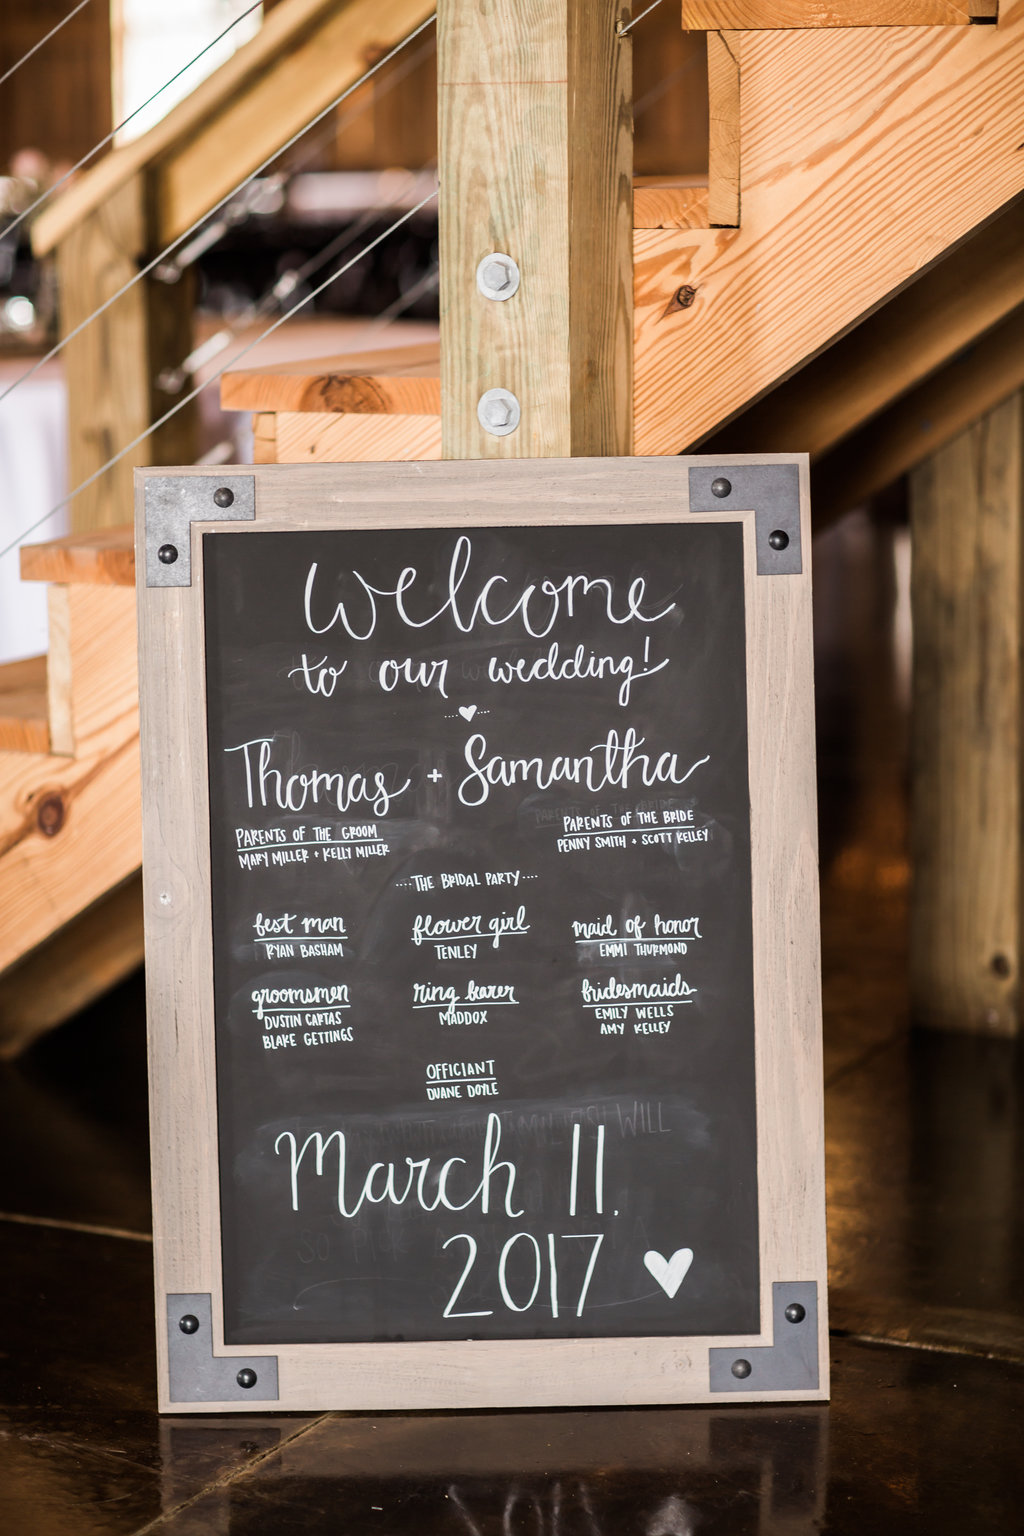 Welcome
to our wedding!
Thomas + Samantha
PARENTS OF THE GROOM
MARY MILLER + KELLY MILLER
PARENTS OF THE BRIDE
PENNY SMITH + SCOTT KELLEY
THE BRIDAL PARTY
best man
RYAN BASHAM
flower girl
TENLEY
maid of honor
EMMI THURMOND
groomsmen
DUSTIN CARTAS
BLAKE GETTINGS
ring bearer
MADDOX
bridesmaids
EMILY WELLS
AMY KELLEY
OFFICIANT
DUANE DOYLE
March 11.
2017